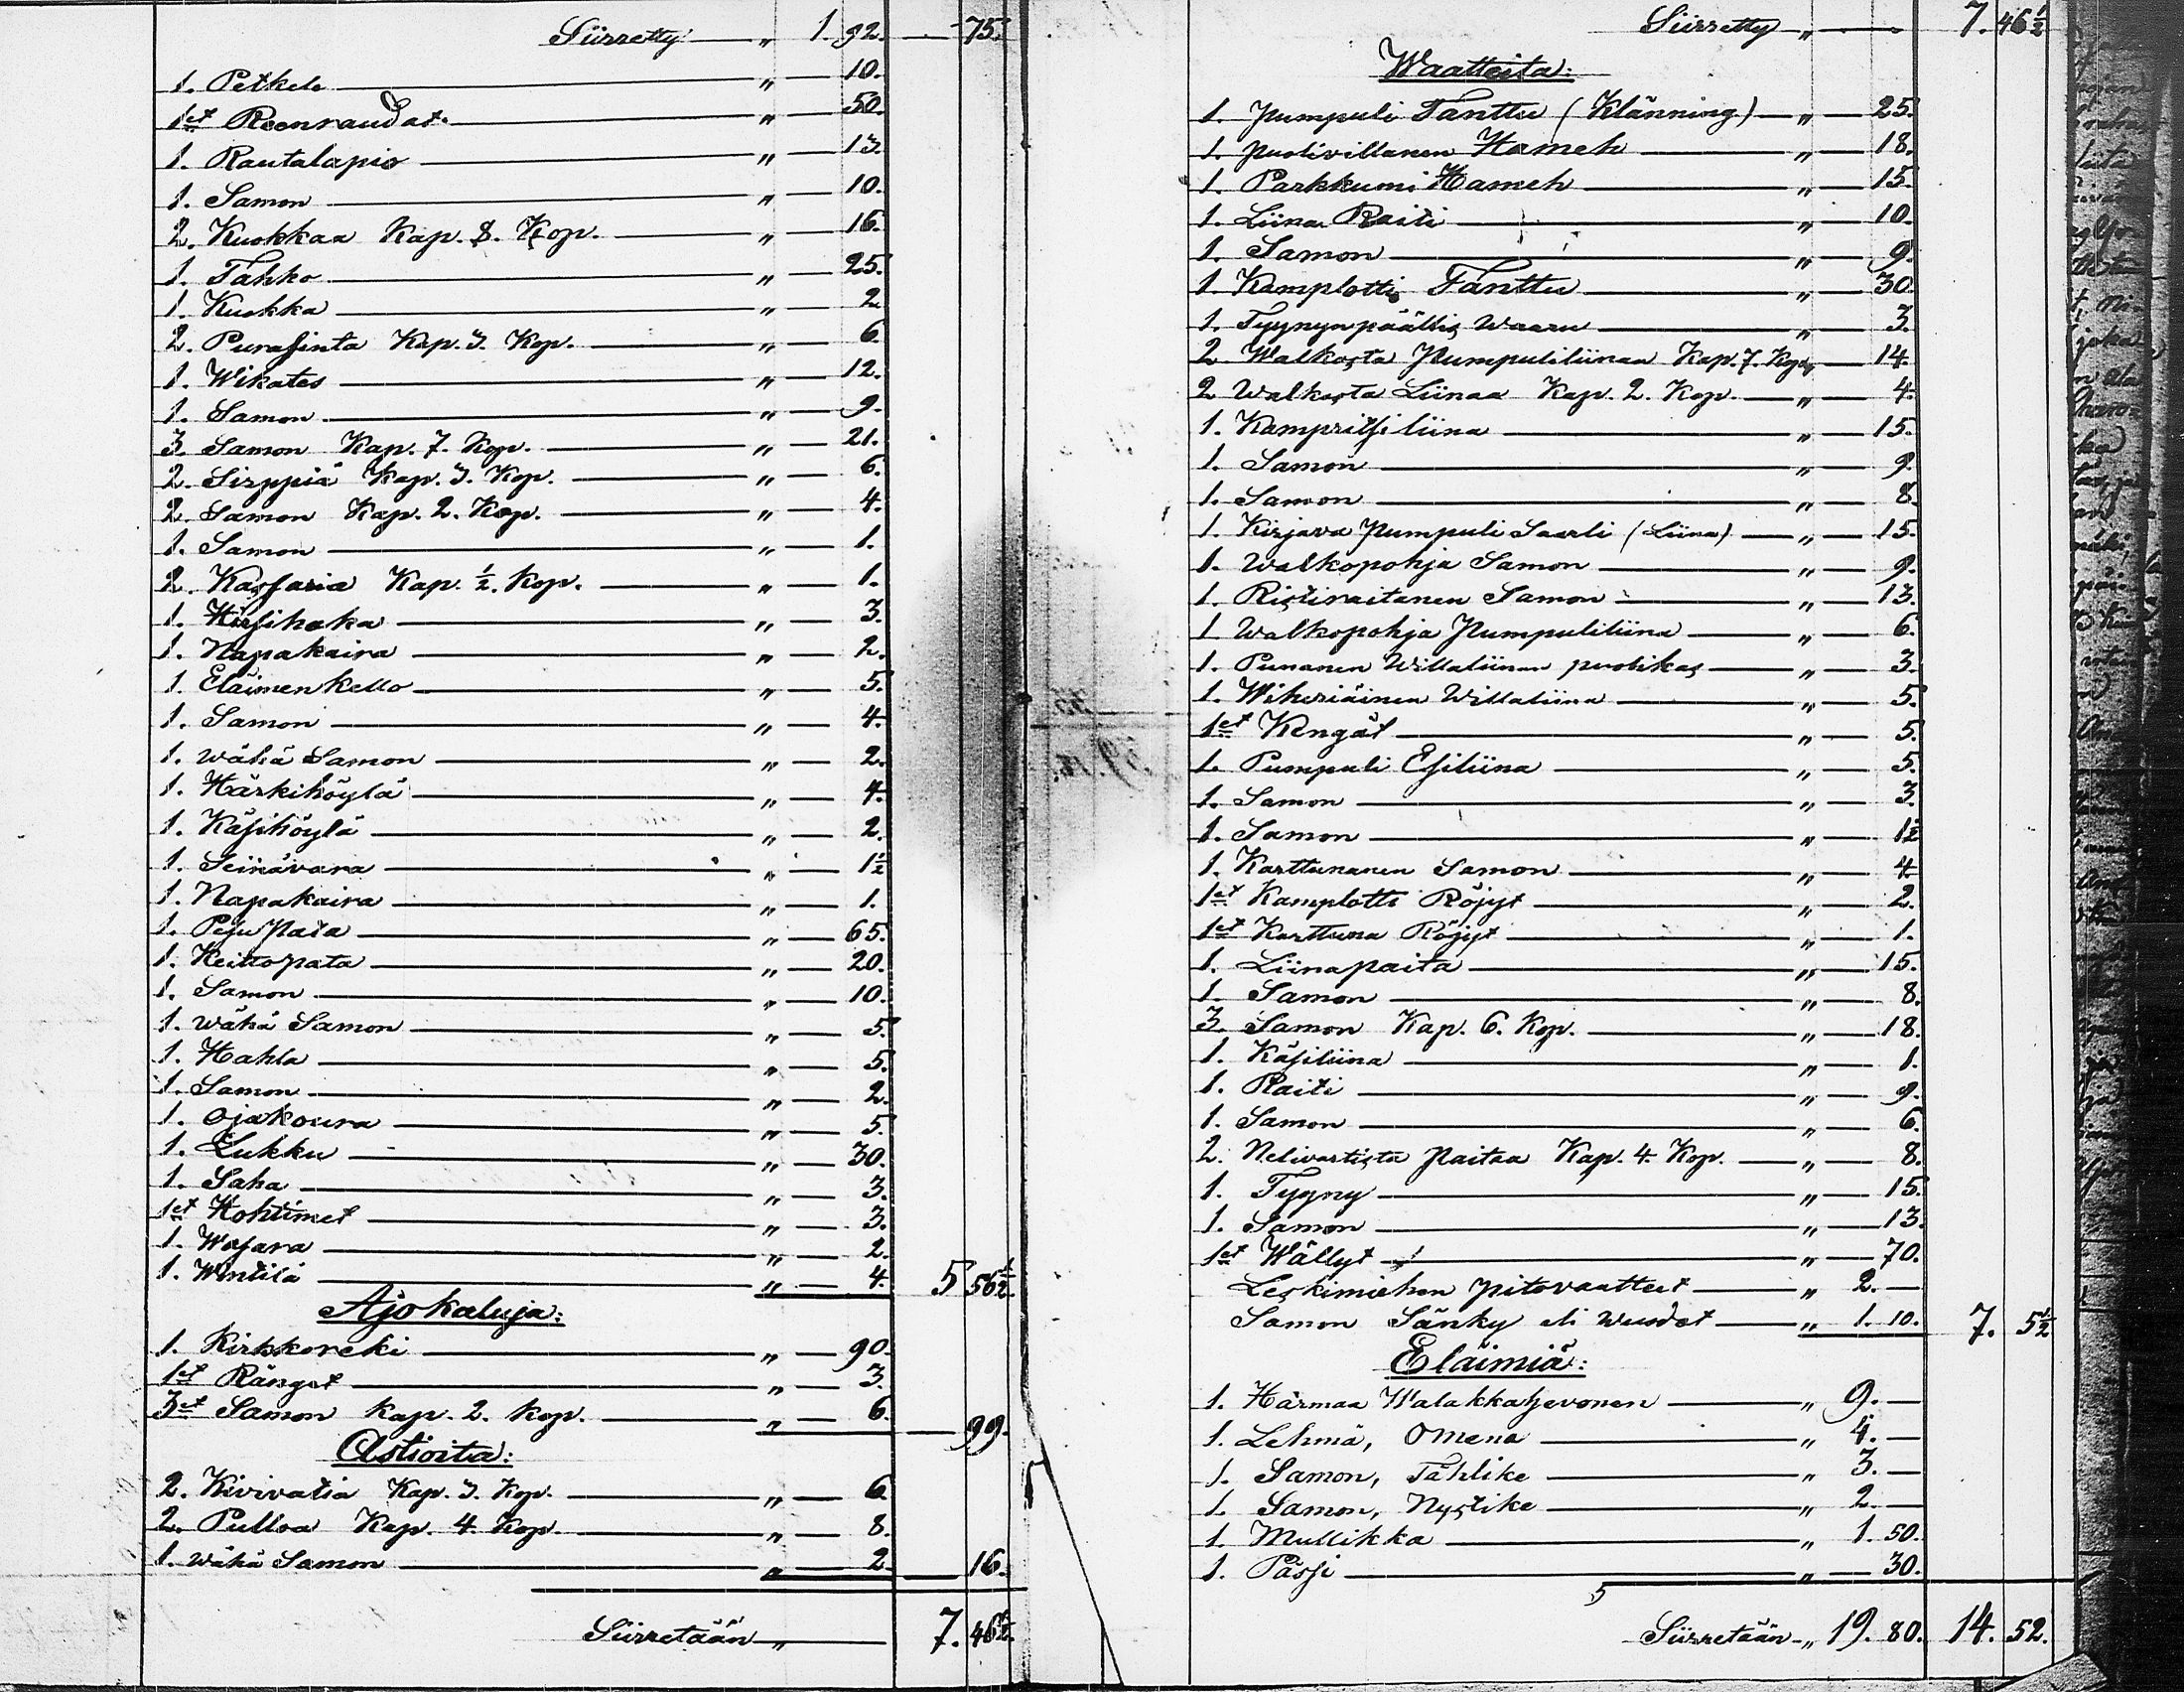 Siirretty — „ 1. 92. — 75.
1. Petkele — „ — 10.
1et Reenraudat. — „ — 50.
1. Rautalapio — „ — 13.
1. Samon — „ — 10.
2. Kuokkaa Kap. 8. Kop. — „ — 16.
1. Tahko — „ — 25.
1. Kuokka — „ — 2
2. Purasinta Kap. 3. Kop. — „ — 6.
1. Wikates — „ — 12.
1. Samon — „ — 9.
3. Samon Kap. 7. Kop. — „ — 21.
2. Sirppiä Kap. 3. Kop. — „ — 6.
2. Samon Kap. 2. Kop. — „ — 4.
1. Samon — „ — 1.
2. Kassaria Kap. ½. Kop. — „ — 1.
1. Hirsihaka — „ — 3.
1. Napakaira — „ — 2.
1. Eläimen kello — „ — 5.
1. Samon — „ — 4.
1. Wähä Samon — „ — 2.
1. Härkihöylä — „ — 4.
1. Käsihöylä — „ — 2.
1. Seinävara — „ — 1½
1. Napakaira — „ — 1.
1. Pesu Pata — „ — 65.
1. Keittopata — „ — 20.
1. Samon — „ — 10.
1. Wähä Samon — „ — 5.
1. Hahla — „ — 5.
1. Samon — „ — 2.
1. Ojakoura — „ — 5.
1. Lukku — „ — 30.
1. Saha — „ — 3.
1et Hohtimet — „ — 3.
1. Wasara — „ — 2.
1. Wintilä — „ — 4. 5 56½.
Ajokaluja:
1. Kirkkoreki — „ — 90.
1et Ränget — „ — 3.
3et Samon Kap. 2. Kop. — „ — 6. — 99.
Astioita:
2. Kivivatia Kap. 3. Kop. — „ — 6.
2. Pulloa Kap. 4. Kop. — „ — 8.
1. Wähä Samon — „ — 2. — 16.
Siirretään „ — 7. 46½.
Siirretty „ — 7. 46½
Waatteita:
1. Pumpuli Tanttu (Klänning) — „ — 25.
1. Puolivillanen Hameh — „ — 18.
1. Parkkumi Hameh — „ — 15.
1. Liina Raiti — „ — 10.
1. Samon — „ — 9.
1. Kamplotti Tanttu — „ — 30.
1. Tyynynpäällis Waaru — „ — 3.
2 Walkosta Pumpuliliinaa Kap. 7. Kop. „ — 14.
2 Walkosta Liinaa Kap. 2. Kop. — „ — 4.
1. Kampritsiliina — „ — 15.
1. Samon — „ — 9.
1. Samon — „ — 8.
1. Kirjava Pumpuli Saarli (Liina) — „ — 15.
1. Walkopohja Samon — „ — 9.
1. Ristiraitanen Samon — „ — 13.
1 Walkopohja Pumpuliliina — „ — 6.
1. Punanen Willaliinan puolikas — „ — 3.
1. Wiheriäinen Willaliina — „ — 5.
1et Kengät — „ — 5.
1. Pumpuli Esiliina — „ — 5.
1. Samon — „ — 3.
1. Samon — „ — 1½
1. Karttunanen Samon — „ — 4.
1et Kamplotti Röjyt — „ — 2.
1et Karttuna Röjyt — „ — 1.
1. Liinapaita — „ — 15.
1. Samon — „ — 8.
3. Samon Kap. 6. Kop. — „ — 18.
1. Käsiliina — „ — 1.
1. Raiti — „ — 9.
1. Samon — „ — 6.
2. Nelivartista Paitaa Kap. 4. Kop. — „ — 8.
1. Tyyny — „ — 15.
1. Samon — „ — 13.
1et Wällyt — „ — 70.
Leskimiehen pitovaatteet — „ 2. —
Samon Sänky eli Wuodet — „ 1. 10. 7. 5½
Eläimiä:
1. Härmaa Walakkahevonen — „ 9. —
1. Lehmä, Omena — „ 4. —
1. Samon, Tählike — „ 3. —
1. Samon, Nystike — „ 2. —
1. Mullikka — „ 1. 50.
1. Pässi — „ — 30.
Siirretään „ 19. 80. 14. 52.